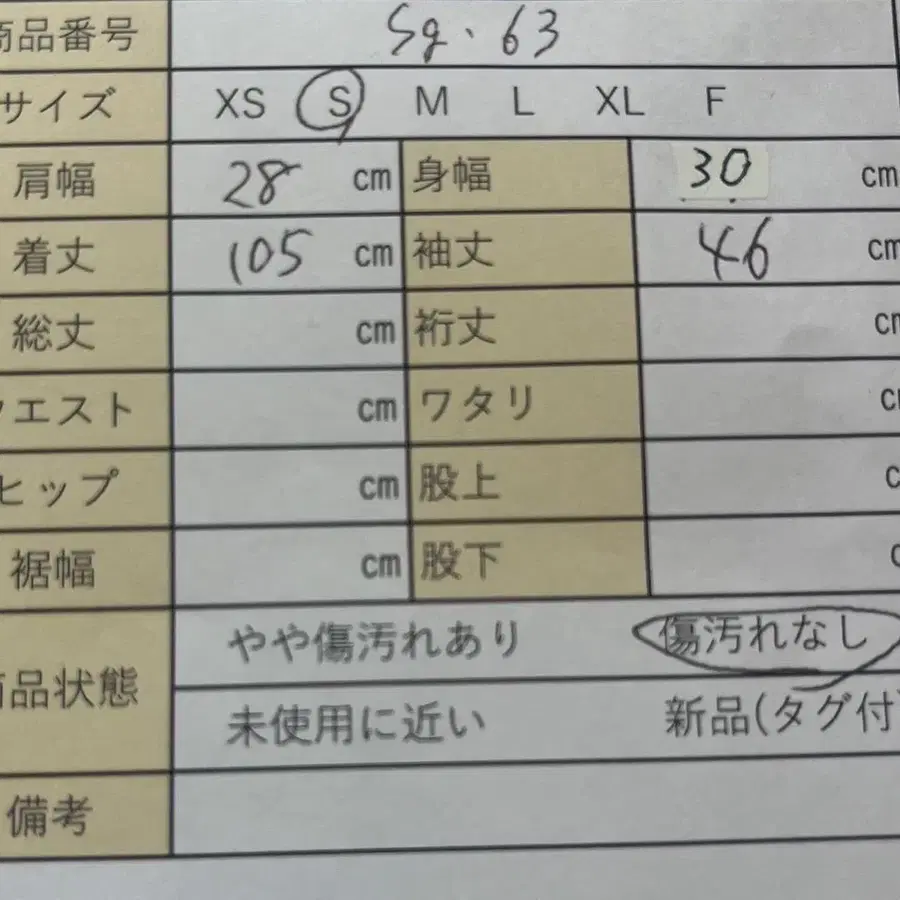 商品番号 Sg・63
サイズ XS S M L XL F
肩幅 28 cm 身幅 30 cm
着丈 105 cm 袖丈 46 cm
総丈 cm 裄丈 cm
ウエスト cm ワタリ c
ヒップ cm 股上 c
裾幅 cm 股下 c
やや傷汚れあり 傷汚れなし
商品状態
未使用に近い 新品(タグ付)
備考